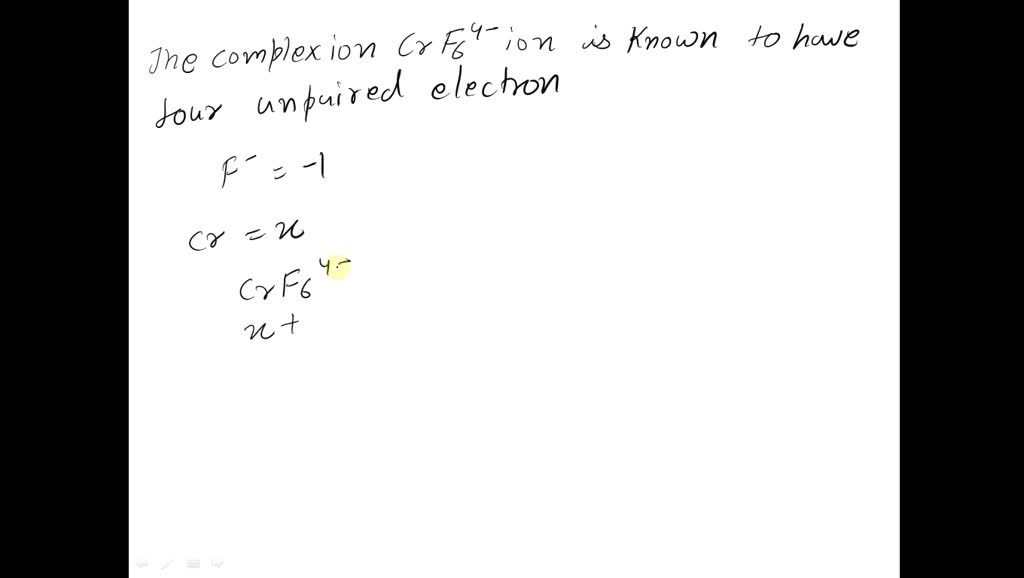 The complexion CrF6^4- ion is known to have
four unpaired electron
F^- = -1
Cr = x
CrF6^4-
x +